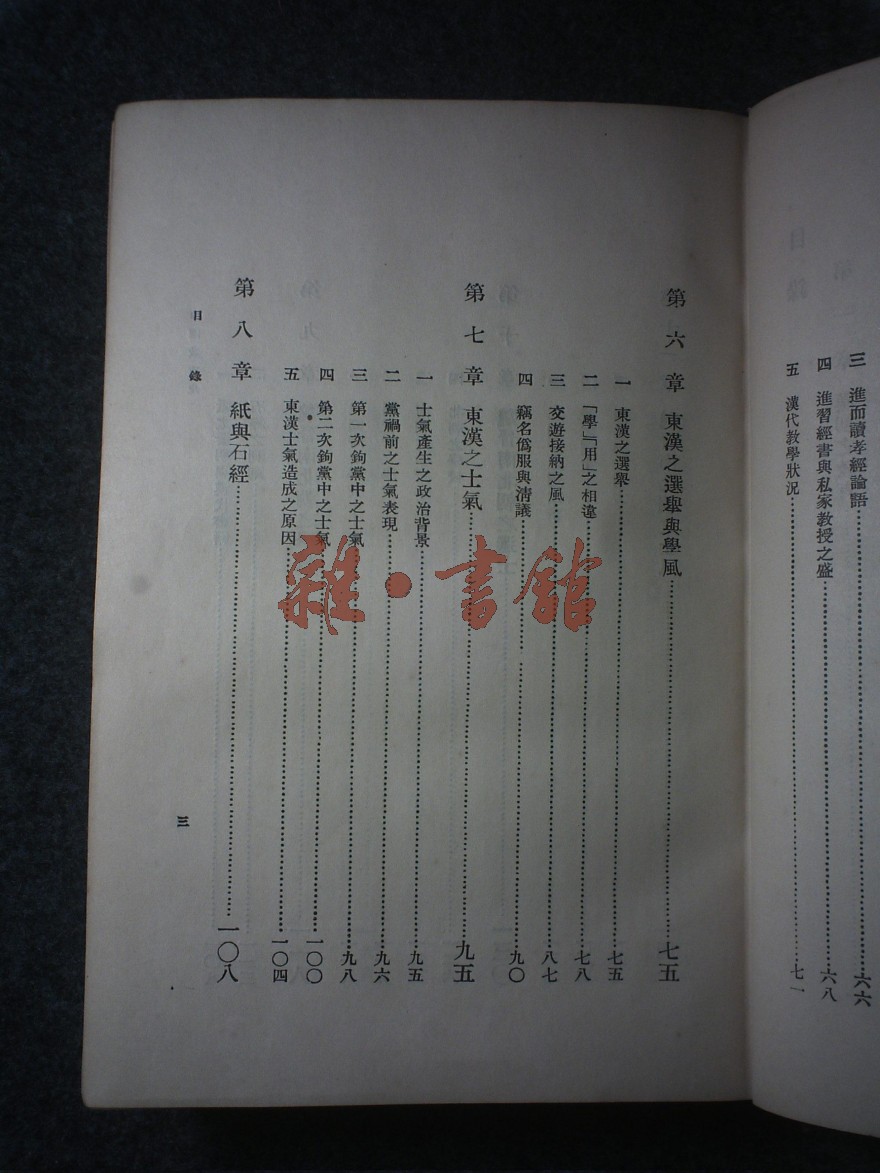 三 進而讀孝經論語……六六
四 進習經書與私家教授之盛……六八
五 漢代教學狀況……七一
第六章 東漢之選舉與學風……七五
一 東漢之選舉……七五
二 「學」「用」之相違……七八
三 交遊接納之風……八七
四 竊名僞服與淸議……九〇
第七章 東漢之士氣……九五
一 士氣產生之政治背景……九五
二 黨禍前之士氣表現……九六
三 第一次鉤黨中之士氣……九八
四 第二次鉤黨中之士氣……一〇〇
五 東漢士氣造成之原因……一〇四
第八章 紙與石經……一〇八
目錄
三
雜·書館